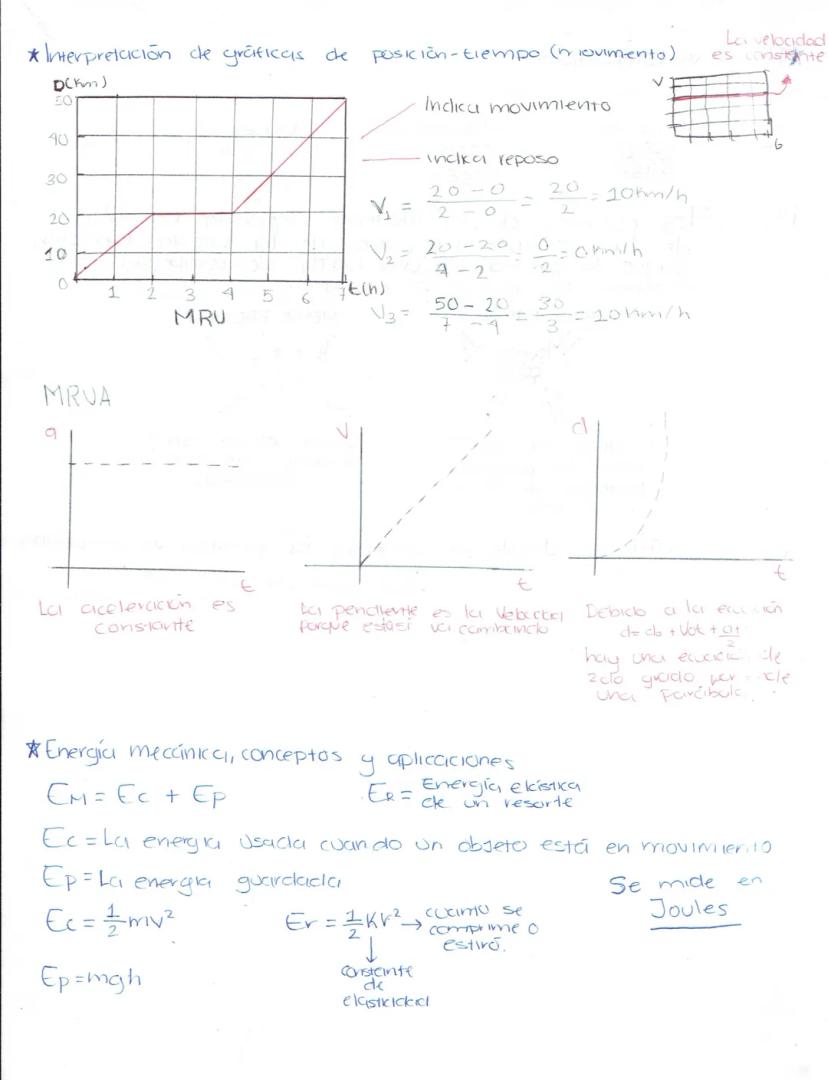 * Interpretación de gráficas de posición-tiempo (movimiento)
La velocidad
es constante
D(km)
50
40
30
20
10
0
1 2 3 4 5 6 7 t(h)
MRU
Indica movimiento
indica reposo
V
t
V₁ = 20 - 0 / 2 - 0 = 20 / 2 = 10 km/h
V₂ = 20 - 20 / 4 - 2 = 0 / 2 = 0 km/h
V₃ = 50 - 20 / 7 - 4 = 30 / 3 = 10 km/h
MRUA
a
t
La aceleración es
constante
V
t
La pendiente es la
porque esta si va cambiando
d
t
Debido a la ecuación
d = do + Vot + at / 2
hay una ecuación de
2do grado
una parábola.
* Energía mecánica, conceptos y aplicaciones
EM = Ec + Ep
ER = Energía elástica
de un resorte
Ec = La energía usada cuando un objeto está en movimiento
Ep = La energía guardada
Se mide en
Joules
Ec = 1/2 mv²
Er = 1/2 Kr² → cuanto se
comprime o
estiró.
↓
constante
de
elasticidad
Ep = mgh